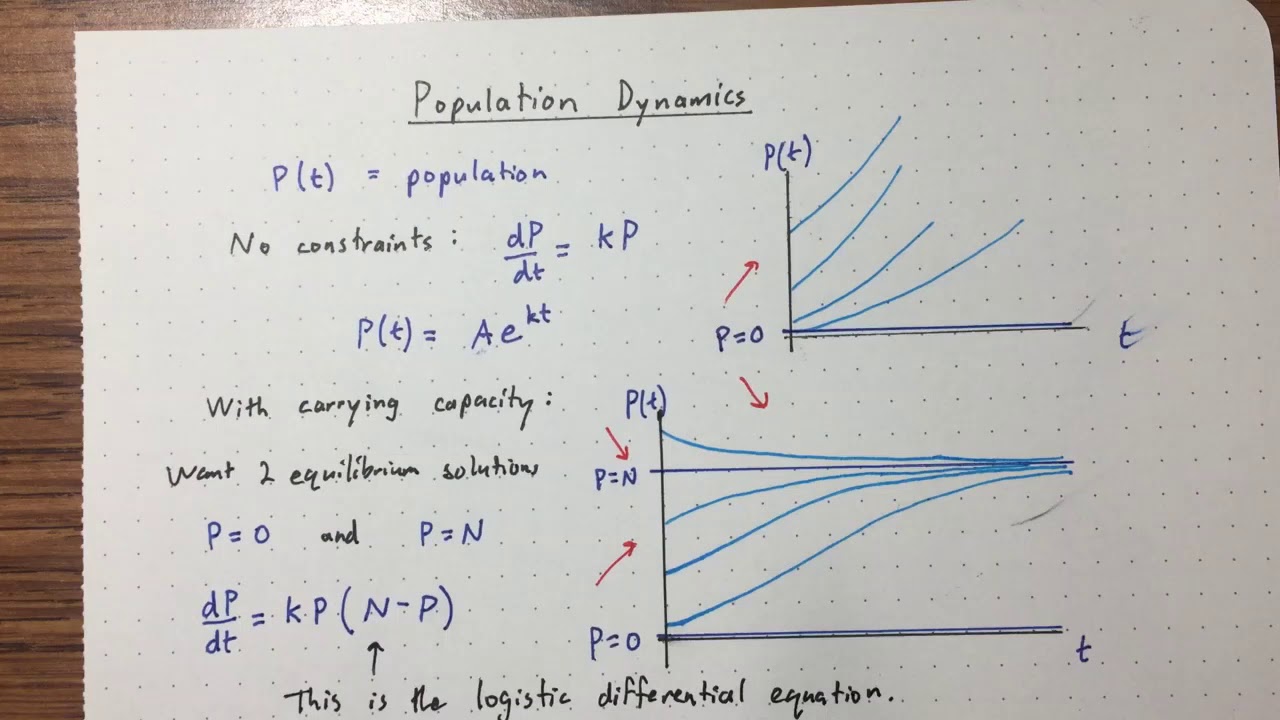 Population Dynamics
P(t) = population
No constraints: dP/dt = kP
P(t) = Ae^kt
With carrying capacity:
Want 2 equilibrium solutions
P=0 and P=N
dP/dt = kP(N-P)
↑
This is the logistic differential equation.
P(t)
P=0
t
P(t)
P=N
P=0
t